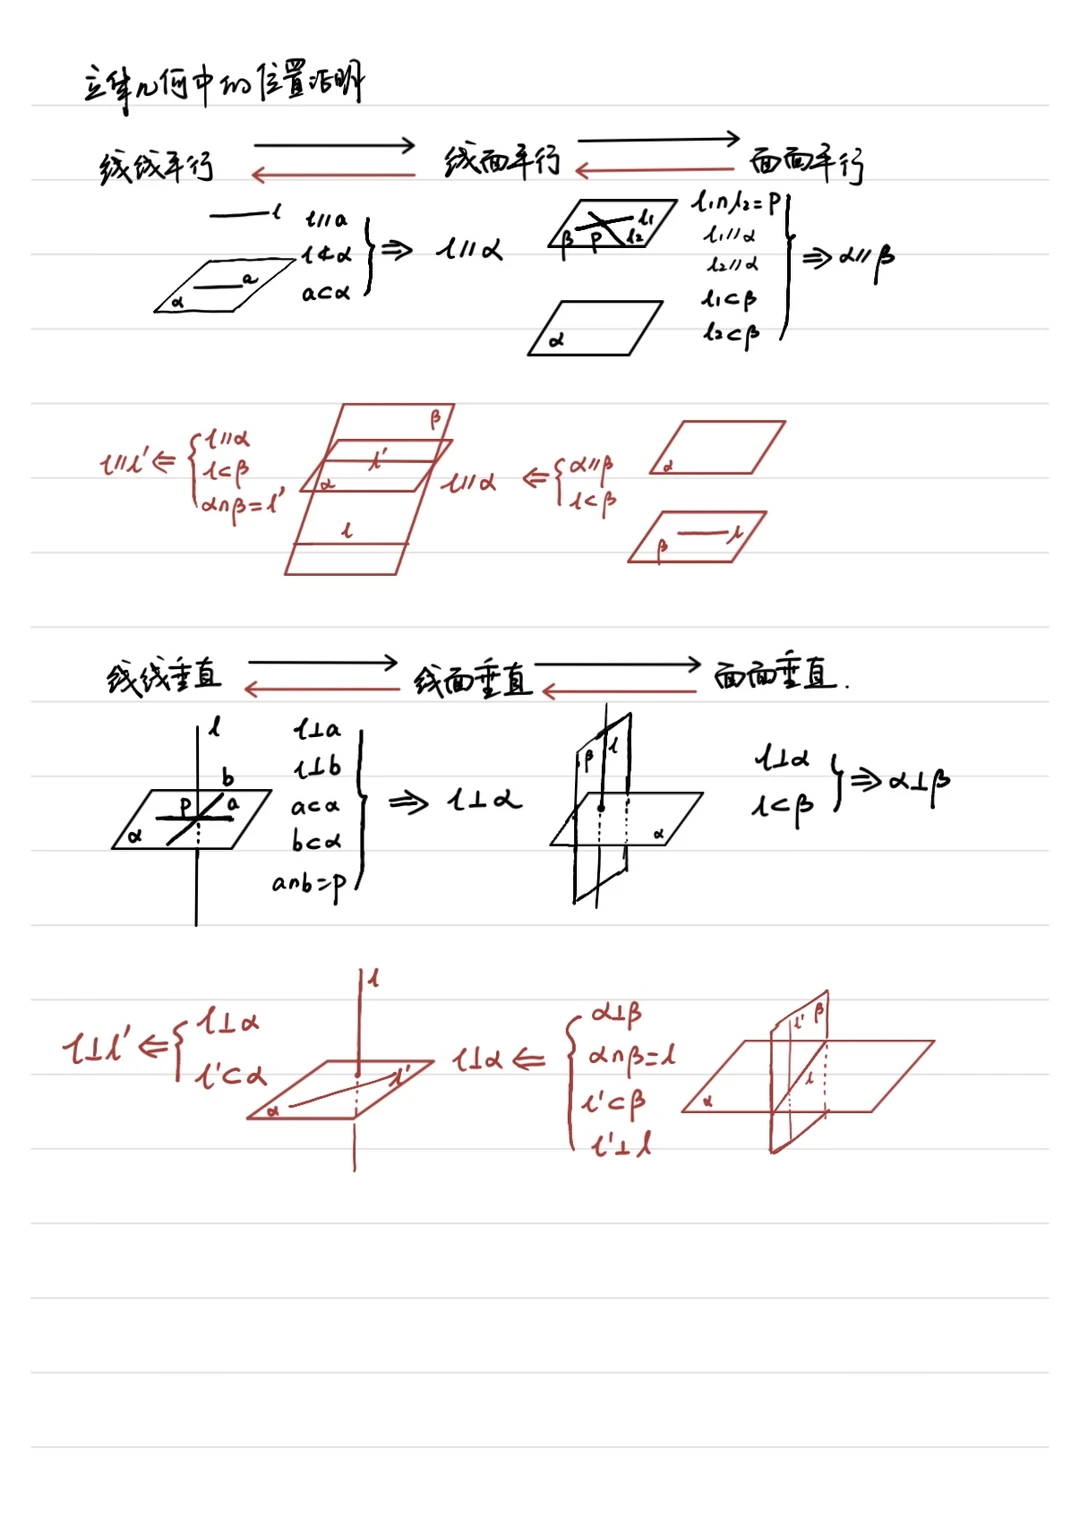 立体几何中的位置证明
线线平行 线面平行 面面平行
l
l∥a
l⊄α
a⊂α
⇒ l∥α
a
α
l₁
l₂
P
β
l₁∩l₂=P
l₁∥α
l₂∥α
l₁⊂β
l₂⊂β
⇒ α∥β
α
l∥l′ ⇐
l∥α
l⊂β
α∩β=l′
β
l′
α
l
l∥α ⇐
α∥β
l⊂β
α
β
l
线线垂直 线面垂直 面面垂直.
l
b
P a
α
l⊥a
l⊥b
a⊂α
b⊂α
a∩b=P
⇒ l⊥α
β l
α
l⊥α
l⊂β
⇒ α⊥β
l⊥l′ ⇐
l⊥α
l′⊂α
l
l′
α
l⊥α ⇐
α⊥β
α∩β=l
l′⊂β
l′⊥l
l′ β
l
α